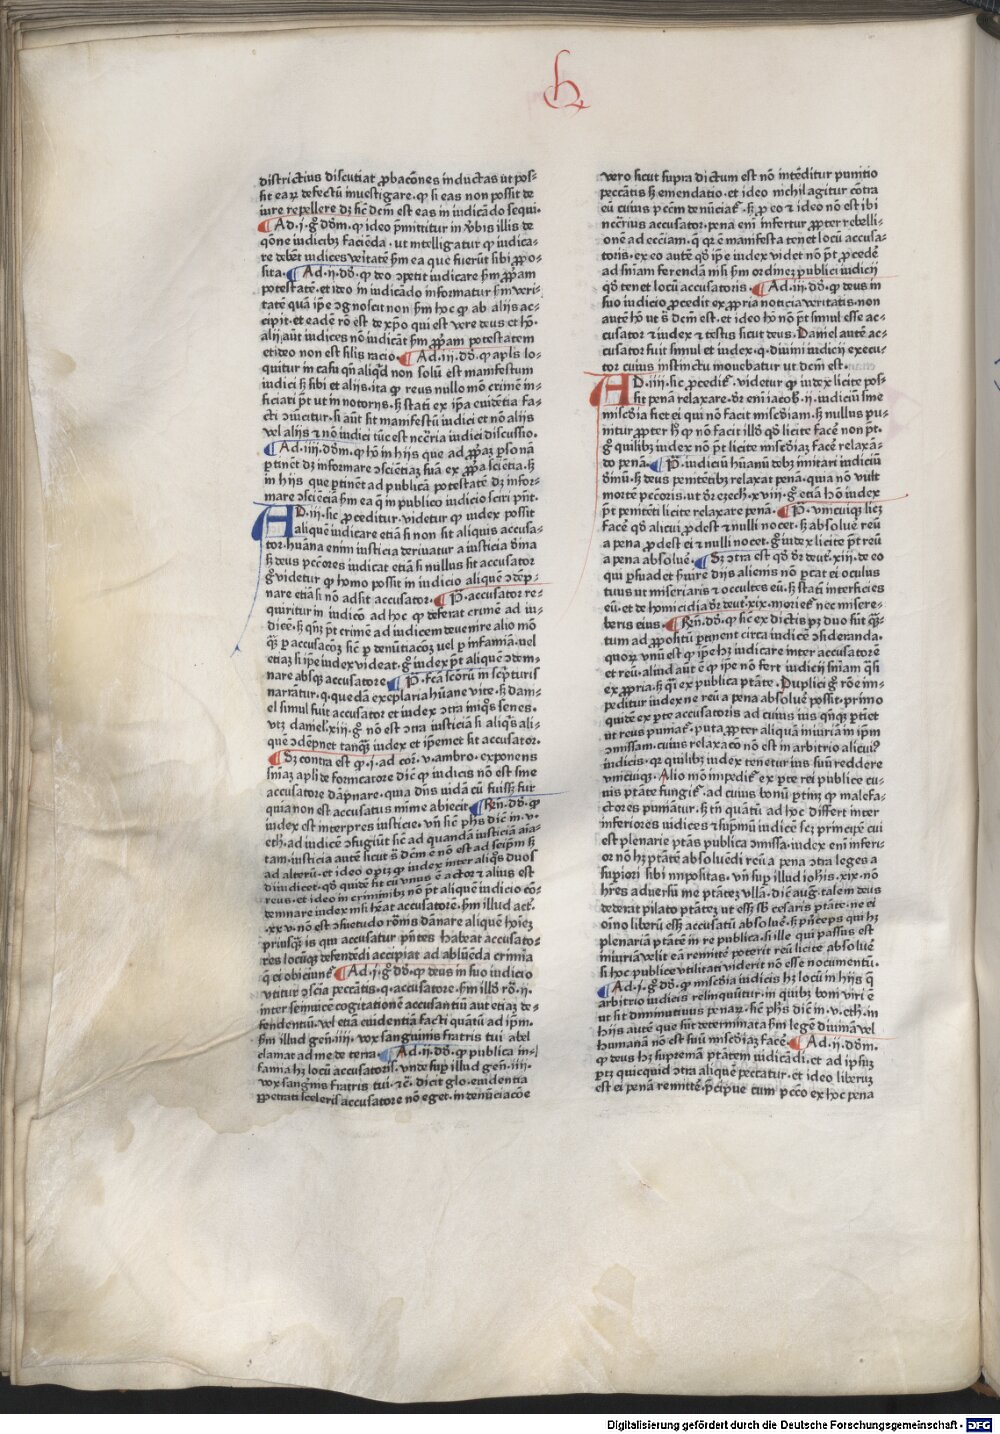 h
districtius discutiat ꝓbacōnes inductas ut pos⸗
sit eaꝝ defectū inuestigare. ꝙ si eas non possit de
iure repellere dꝫ sic̄ dcm̄ est eas in iudicādo sequi.
Ad .i. gͦ dōm. ꝙ ideo p̄mittitur in v̄bis illis de
qōne iudicibꝫ faciēda. ut intelligatur ꝙ iudica⸗
re debēt iudices veitatē s̄m ea que fuerūt sibi ꝓpo⸗
sita. Ad .ii. dō. ꝙ deo ↄpetit iudicare s̄m ꝓpͥam
potestatē. et ideo in iudicādo informatur s̄m veri⸗
tatē quā ip̄e ↄgnoscit non s̄m hͦc ꝙ ab alijs ac⸗
cipit. et eadē rō est de xp̄o qui est vere deus et hō.
alij aūt iudices nō iudicāt s̄m ꝓpͥam potestatem
et ideo non est sil̄is racio. Ad .iii. dō. ꝙ apl̄s lo⸗
quitur in casu qn̄ aliqͥd non solū est manifestum
iudici sꝫ sibi et alijs. ita ꝙ reus nullo mō crimē in⸗
ficiari pͭ ut in notorijs. sꝫ statī ex ip̄a euidētia fa⸗
cti ↄuīcitur. si aūt sit manifestū iudici et nō alijs
vel alijs ⁊ nō iudici tūc est nccͥria iudici discussio.
Ad .iiii. dōm. ꝙ hō in hijs que ad ꝓpͥaꝫ ꝑsonā
ꝑtinēt dꝫ informare ↄscientiaꝫ suā ex ꝓpͥa sciētia. sꝫ
in hijs que ꝑtinēt ad publicā potestatē dꝫ infor⸗
mare ↄsciētiā s̄m ea q̄ in publico iudicio sciri pn̄t.
AD .iii. sic ꝓceditur. videtur ꝙ iudex possit
aliquē iudicare etiā si non sit aliquis accusa⸗
tor. hūana enim iusticia deriuatur a iusticia dīna
sꝫ deus pccōres iudicat etiā si nullus sit accusator
gͦ videtur ꝙ homo possit in iudicio aliquē ↄdēp⸗
nare etiā si nō adsit accusator. P̄. accusator re⸗
quiritur in iudicō ad hͦc ꝙ deferat crimē ad iu⸗
dicē. sꝫ qn̄qꝫ pͭ crimē ad iudicem deuenire alio mō
qͣꝫ ꝑ accusacōꝫ sic̄ ꝑ denūtiacōꝫ vel ꝑ infamiā. uel
etiaꝫ si ip̄e iudex videat. gͦ iudex pͭ aliquē ↄdem⸗
nare absqꝫ accusatore. P̄. fc̄a scōrum in sc̄pturis
narrātur. q. quedā exeplaria hūane vite. sꝫ dani⸗
el simul fuit accusator et iudex ↄtra iniqͦs senes.
vtꝫ daniel. xiii. gͦ nō est ↄtra iusticiā si aliqͥs ali⸗
quē ↄdēpnet tanqͣꝫ iudex et ip̄emet sit accusator.
Sꝫ contra est ꝙ .i. ad cor̄. v. ambro. exponens
sn̄iaꝫ apl̄i de fornicatore dic̄ ꝙ iudicis nō est sine
accusatore dāpnare. quia dn̄s iudā cū fuiss; fur
quia non est accusatus mīime abiecit. Rn̄. dō. ꝙ
iudex est interpres iusticie. vn̄ sic̄ ph̄s dic̄ in .v.
eth. ad iudicē ↄfugiūt sic̄ ad quandā iusticiā aīa⸗
tam. iusticia autē sicut sͣ dc̄m ē nō est ad seip̄m sꝫ
ad alterū. et ideo oꝑtꝫ ꝙ iudex inter aliqͦs duos
diiudicet. qd̄ quidē sit cū vnus ē actor ⁊ alius est
reus. et ideo in criminibꝫ nō pͭ aliquē iudicio cō⸗
demnare iudex nisi h̄eat accusatorē. s̄m illud act̄.
.xxv. nō est ↄsuetudo rōnis dānare aliquē hōieꝫ
priusqͣꝫ is qui accusatur pn̄tes habeat accusato⸗
res locūqꝫ defendēdi accipiat ad ablūēda crimīa
q̄ ei obiciunͭ. Ad .i. gͦ dō. ꝙ deus in suo iudicio
vtitur ↄscīa peccātis. q. accusatore. s̄m illd̄ rō. ii.
inter se inuicē cogitationē accusantiū aut etiaꝫ de⸗
fendentiū. vel etiā euidentiā facti quātū ad ip̄m.
s̄m illud gen̄. iiii. vox sanguinis fratris tui abel
clamat ad me de terra. Ad .ii. dō. ꝙ publica in⸗
famia hꝫ locū accusatoris. vnde suꝑ illud gen̄. iiii.
vox sangnis fratris tui. ⁊c̄. dicit glo. euidentia
ꝑpetrati sceleris accusatore nō eget. in denūciacōe
vero sicut supra dictum est nō intēditur punitio
peccātis sꝫ emendatio. et ideo nichil agitur cōtra
eū cuius pccm̄ denūciaͭ. sꝫ ꝓ eo ⁊ ideo nō est ibi
nccͥrius accusator. pena eni infertur ꝓpter rebelli⸗
onē ad eccīam. q̄ qꝛ ē manifesta tenet locū accusa⸗
toris. ex eo autē qd̄ ip̄e iudex videt nō pͭ ꝓcedē
ad sn̄iam ferendā nisi s̄m ordineꝫ publici iudicii
qd̄ tenet locū accusatoris. Ad .iii. dō. ꝙ deus in
suo iudicio ꝓcedit ex ꝓpria noticia veritatis. non
autē hō ut sͣ dcm̄ est. et ideo hō nō pͭ simul esse ac⸗
cusator ⁊ iudex ⁊ testis sicut deus. Daniel autē ac⸗
cusator fuit simul et iudex. q. diuini iudicii execu⸗
tor cuius instinctu mouebatur ut dcm̄ est.
AD .iiii. sic ꝓcediͭ. videtur ꝙ iudex licite pos⸗
sit penā relaxare. dr̄ eni iacob. ii. iudiciū sine
misc̄dia fiet ei qui nō facit misc̄diam. sꝫ nullus pu⸗
nitur ꝓpter hͦ ꝙ nō facit illd̄ qd̄ licite facē non pͭ.
gͦ quilibꝫ iudex nō pͭ licite misc̄diaꝫ facē relaxā⸗
do penā. P̄. iudiciū hūanū debꝫ imitari iudiciū
dīnū. sꝫ deus penitētibꝫ relaxat penā. quia nō vult
mortē pccōris. ut dr̄ ezech̄. xviii. gͦ etiā hō iudex
pͭ penitēti licite relaxare penā. P̄. vnicuiqꝫ licꝫ
facē qd̄ alicui ꝓdest ⁊ nulli nocet. sꝫ absoluē reū
a pena ꝓdest ei ⁊ nulli nocet. gͦ iudex licite pͭ reū
a pena absoluē. Sꝫ ↄtra est qd̄ dr̄ deut̄. xiii. de eo
qui ꝑsuadet s̄uire dijs alienis nō ꝑcat ei oculus
tuus ut miseriaris ⁊ occultes eū. sꝫ statī interficies
eū. et de homicida dr̄ deut̄. xix. morieͭ nec misere⸗
beris eius. Rn̄. dō. ꝙ sic̄ ex dictis pꝫ duo sūt qͣꝫ⸗
tum ad ꝓpositū ꝑtinent circa iudicē ↄsideranda.
quoꝝ vnū est ꝙ ip̄e hꝫ iudicare inter accusatorē
et reū. aliud aūt ē ꝙ ip̄e nō fert iudicij sn̄iam qͣsi
ex ꝓpria. sꝫ qͣi ex publica ptāte. Duplici gͦ rōe im⸗
peditur iudex ne reū a pena absoluē possit. primo
quidē ex ꝑte accusatoris ad cuius ius qn̄qꝫ ꝑtīet
ut reus puniaͭ. puta ꝓpter aliquā iniuriā in ip̄m
ↄmissam. cuius relaxacō nō est in arbitrio alicuiꝰ
iudicis. qꝛ quilibꝫ iudex tenetur ius suū reddere
vnicuiqꝫ. Alio mō impediͭ ex ꝑte rei publice cu⸗
ius ptāte fungiͭ. ad cuius bonū ꝑtinꝫ ꝙ malefa⸗
ctores puniātur. sꝫ tn̄ quātū ad hͦc differt inter
inferiores iudices ⁊ sup̄mū iudicē scꝫ principē cui
est plenarie ptās publica ↄmissa. iudex enī inferi⸗
or nō hꝫ ptātē absoluēdi reū a pena ↄtra leges a
suꝑiori sibi impositas. vn̄ suꝑ illud ioh̄is. xix. nō
h̄res aduersū me ptāteꝫ vllā. dic̄ aug. talem deus
dederat pilato ptāteꝫ ut ess; sb̄ cesaris ptāte. ne ei
oīno liberū ess; accusatū absoluē. sꝫ p̄nceps qui hꝫ
plenariā ptātē in re publica. si ille qui passus est
iniuriā velit eā remittē poterit reū licite absoluē
si hoc publice vtilitati viderit nō esse nocumentū.
Ad .i. gͦ dō. ꝙ misc̄dia iudicis hꝫ locū in hijs q̄
arbitrio iudicis relinquūtur. in quibꝫ boni viri ē
ut sit diminutiuus penaꝝ. sic̄ ph̄s dic̄ in .v. eth. in
hijs autē que sūt determinata s̄m legē diuinā vel
humanā nō est suū misc̄diaꝫ facē. Ad .ii. dōm.
ꝙ deus hꝫ supremā ptātem iudicādi. et ad ipsuꝫ
ꝑtꝫ quicquid ↄtra aliquē peccatur. et ideo liberuꝫ
est ei penā remittē. p̄cipue cum pccō ex hͦc pena
Digitalisierung gefördert durch die Deutsche Forschungsgemeinschaft - DFG